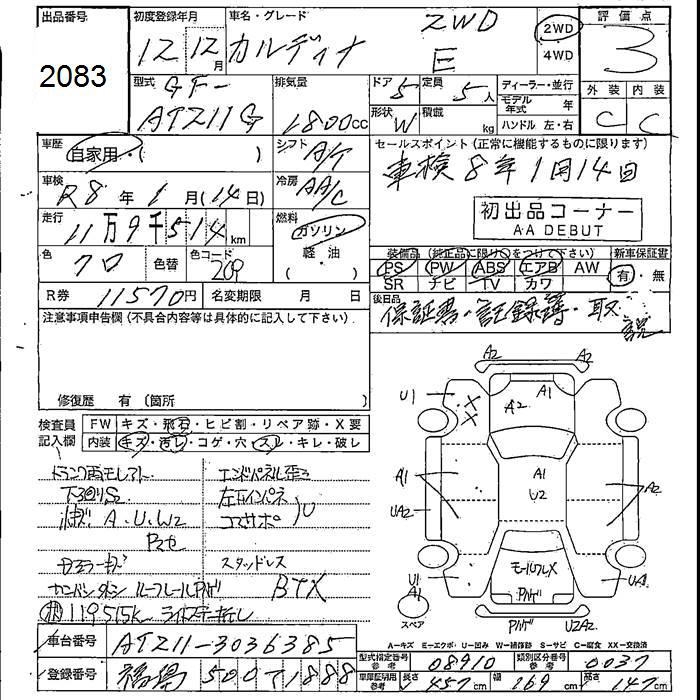 出品番号 初度登録年月 車名・グレード 評価点
2083
12年12月 カルディナ 2WD E
2WD
4WD
3
型式 排気量 ドア 定員 ディーラー・並行 外装 内装
GF-
AT211G 1800cc 5 5人
形状 W 積載 kg
モデル年式 年
ハンドル 左・右
C C
車歴 自家用・( ) シフト A/T
セールスポイント(正常に機能するものに限ります)
車検8年1月14日
車検 R8年1月(14日) 冷房 AA/C
初出品コーナー
AA DEBUT
走行 11万9千514km 燃料 ガソリン
軽・油
・( )
色 クロ 色替 色コード 209
装備品(純正品に限り○をつけて下さい) 新車保証書
PS PW ABS エアB AW 有・無
SR ナビ TV カワ
R券 11570円 名変期限 月 日
後日品
保証書・記録簿・取説
注意事項申告欄(不具合内容等は具体的に記入して下さい)
修復歴 有(箇所 )
検査員記入欄 FW キズ・飛石・ヒビ割・リペア跡・X要
内装 キズ・汚レ・コゲ・穴・スレ・キレ・破レ
エンドパネル歪ミ
下回りS2 左右インパネ
A.U.W2 コアサポ U
スタッドレス
BTX
ルーフレール
A2 A2
U1 X X A2 A1
A1 A1 U2 A2
UA2
U1 A1 UA1
スペア U2A2
A-キズ E-エクボ U-凹み W-補修跡 S-サビ C-腐食 XX-交換済
車台番号 AT211-3036385
型式指定番号 参考 08910 類別区分番号 参考 0037
登録番号 福島 500 1888
車庫証明用 参考 長さ 457cm 幅 169cm 高さ 147cm